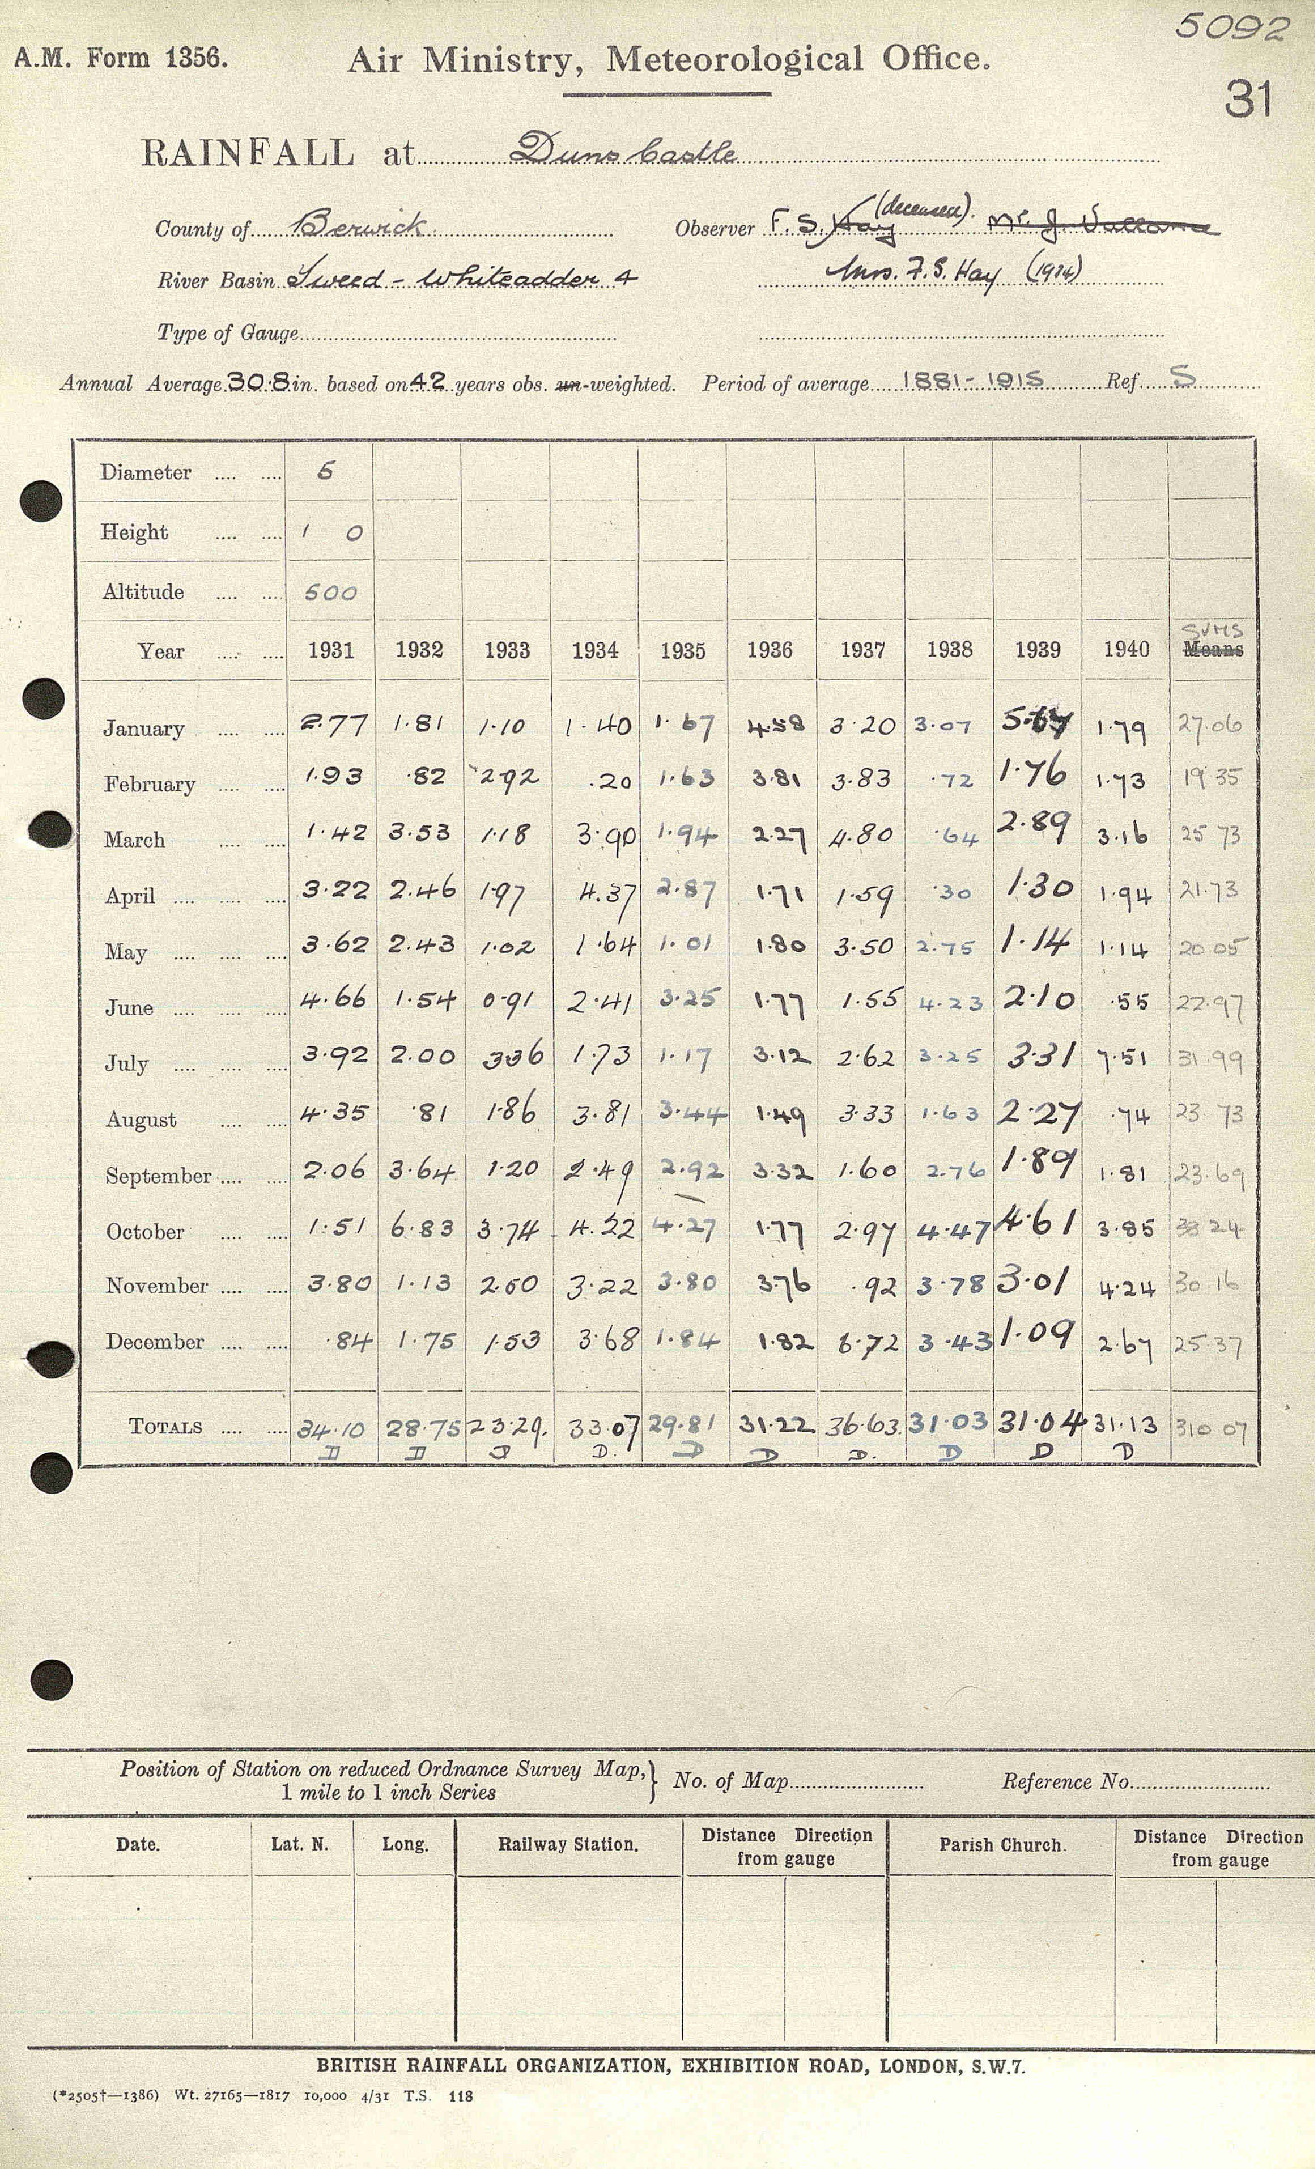 5092
A.M. Form 1356. Air Ministry, Meteorological Office.
31
RAINFALL at Duns Castle
County of Berwick Observer F. S. Hay (deceased). Mr. J.
River Basin Tweed - Whiteadder 4 Mrs. F. S. Hay (1974)
Type of Gauge
Annual Average 30.8 in. based on 42 years obs. un-weighted. Period of average 1881-1915 Ref. S
Diameter 5
Height 1 0
Altitude 500
Year 1931 1932 1933 1934 1935 1936 1937 1938 1939 1940 SUMS Means
January 2.77 1.81 1.10 1.40 1.67 4.58 3.20 3.07 5.67 1.79 27.06
February 1.93 .82 2.92 .20 1.63 3.81 3.83 .72 1.76 1.73 19 35
March 1.42 3.53 1.18 3.90 1.94 2.27 4.80 .64 2.89 3.16 25 73
April 3.22 2.46 1.97 4.37 2.87 1.71 1.59 .30 1.30 1.94 21.73
May 3.62 2.43 1.02 1.64 1.01 1.80 3.50 2.75 1.14 1.14 20.05
June 4.66 1.54 0.91 2.41 3.25 1.77 1.55 4.23 2.10 .55 22.97
July 3.92 2.00 3.36 1.73 1.17 3.12 2.62 3.25 3.31 7.51 31.99
August 4.35 .81 1.86 3.81 3.44 1.49 3.33 1.63 2.27 .74 23 73
September 2.06 3.64 1.20 2.49 2.92 3.32 1.60 2.76 1.89 1.81 23.69
October 1.51 6.83 3.74 4.22 4.27 1.77 2.97 4.47 4.61 3.85 38 24
November 3.80 1.13 2.50 3.22 3.80 3.76 .92 3.78 3.01 4.24 30 16
December .84 1.75 1.53 3.68 1.84 1.82 6.72 3.43 1.09 2.67 25.37
TOTALS 34.10 28.75 23.29. 33.07 29.81 31.22 36.63. 31.03 31.04 31.13 310 07
D D D D. D D D. D D D
Position of Station on reduced Ordnance Survey Map, 1 mile to 1 inch Series } No. of Map Reference No.
Date. Lat. N. Long. Railway Station. Distance Direction from gauge Parish Church. Distance Direction from gauge
BRITISH RAINFALL ORGANIZATION, EXHIBITION ROAD, LONDON, S.W.7.
(*2505†—1386) Wt. 27165—1817 10,000 4/31 T.S. 118